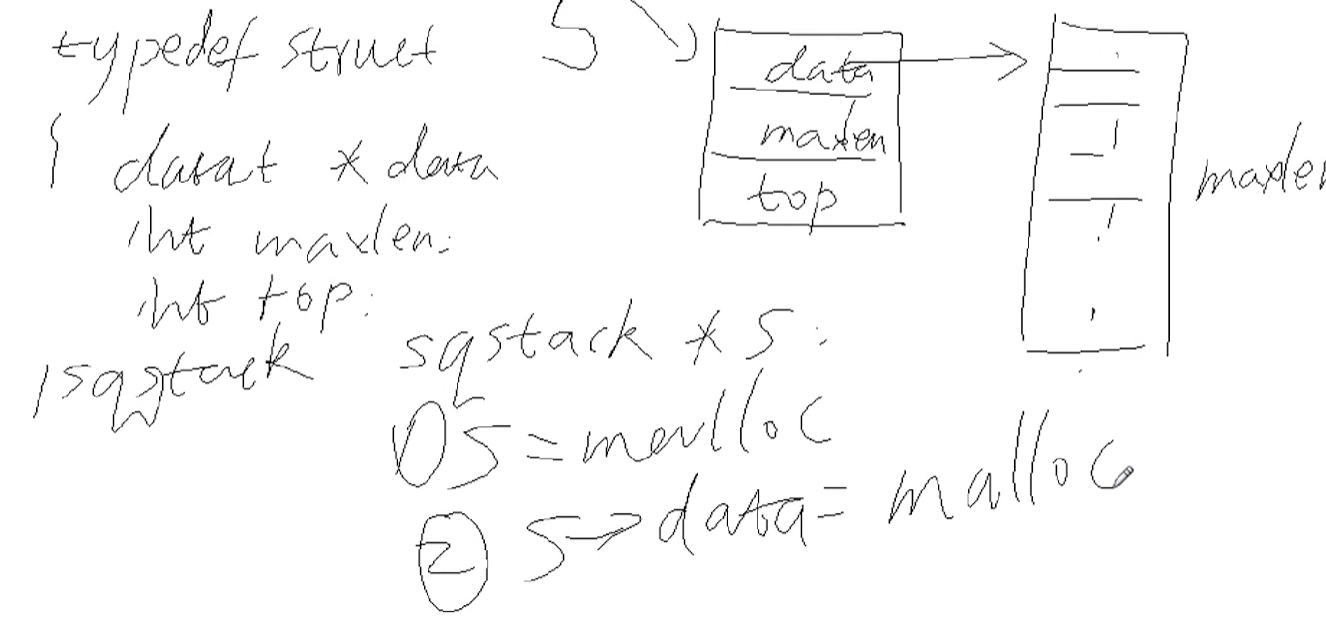 typedef struct
{ datat * data
int maxlen;
int top;
}sqstack
S
data
maxlen
top
maxlen
sqstack * S;
① S = malloc
② S→data = malloc